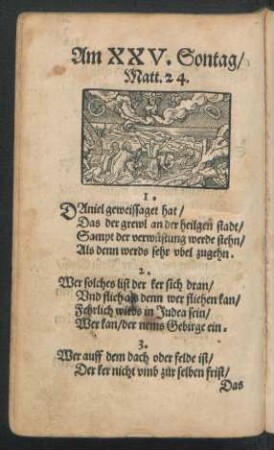 Am XXV. Sontag/
Matt. 24.
1.
DAniel geweissaget hat/
Das der grewl an der heilgen stadt/
Sampt der verwüstung werde stehn/
Als denn werds sehr vbel zugehn.
2.
Wer solches list der ker sich dran/
Vnd flieh als denn wer fliehen kan/
Fehrlich wirds in Judea sein/
Wer kan/der nems Gebirge ein.
3.
Wer auff dem dach oder felde ist/
Der ker nicht vmb zur selben frist/
Das